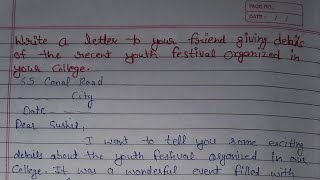 PAGE NO.:
DATE: / /
Write a letter to your friend giving details
of the recent youth festival organized in
your College.
55 Canal Road
City
Date
Dear Sushil,
I want to tell you some exciting
details about the youth festival organized in our
College. It was a wonderful event filled with